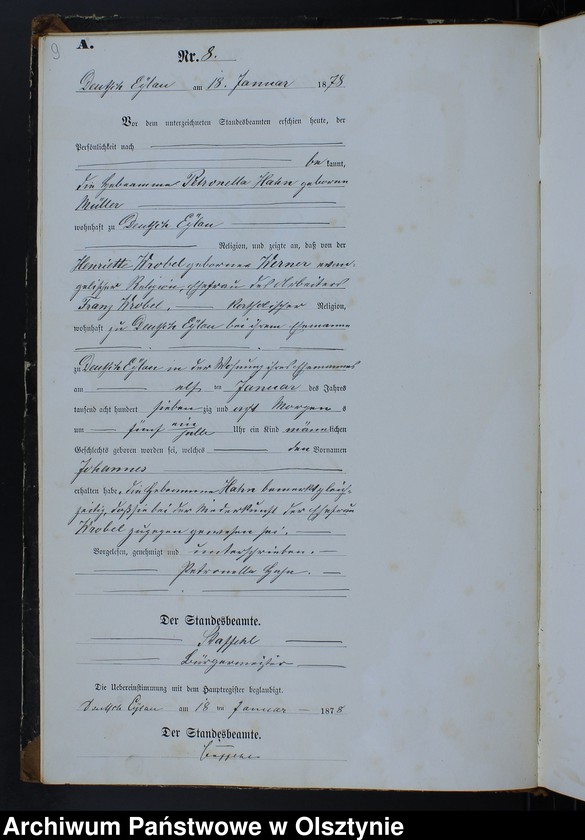 9
A.
Nr. 8.
Deutsch Eylau am 18. Januar 1878
Vor dem unterzeichneten Standesbeamten erschien heute, der
Persönlichkeit nach
bekannt,
die Hebeamme Petronella Hahn geborene
Müller
wohnhaft zu Deutsch Eylau
Religion, und zeigte an, daß von der
Henriette Wrobel geborner Werner evan-
gelischer Religion, Ehefrau des Arbeiters
Franz Wrobel, katholischer Religion,
wohnhaft zu Deutsch Eylau bei ihrem Ehemanne
zu Deutsch Eylau in der Wohnung ihres Ehemannes
am elf ten Januar des Jahres
tausend acht hundert sieben zig und acht Morgens
um fünf ein halb Uhr ein Kind männlichen
Geschlechts geboren worden sei, welches den Vornamen
Johannes
erhalten habe, die Hebeamme Hahn bemerkt gleich-
zeitig, daß sie bei der Niederkunft der Ehefrau
Wrobel zugegen gewesen sei.
Vorgelesen, genehmigt und unterschrieben.
Petronella Hahn.
Der Standesbeamte.
Bürgermeister
Die Uebereinstimmung mit dem Hauptregister beglaubigt.
Deutsch Eylau am 18 ten Januar 1878
Der Standesbeamte.
Archiwum Państwowe w Olsztynie